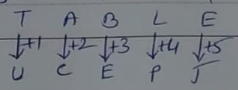 T A B L E
↓+1 ↓+2 ↓+3 ↓+4 ↓+5
U C E P J